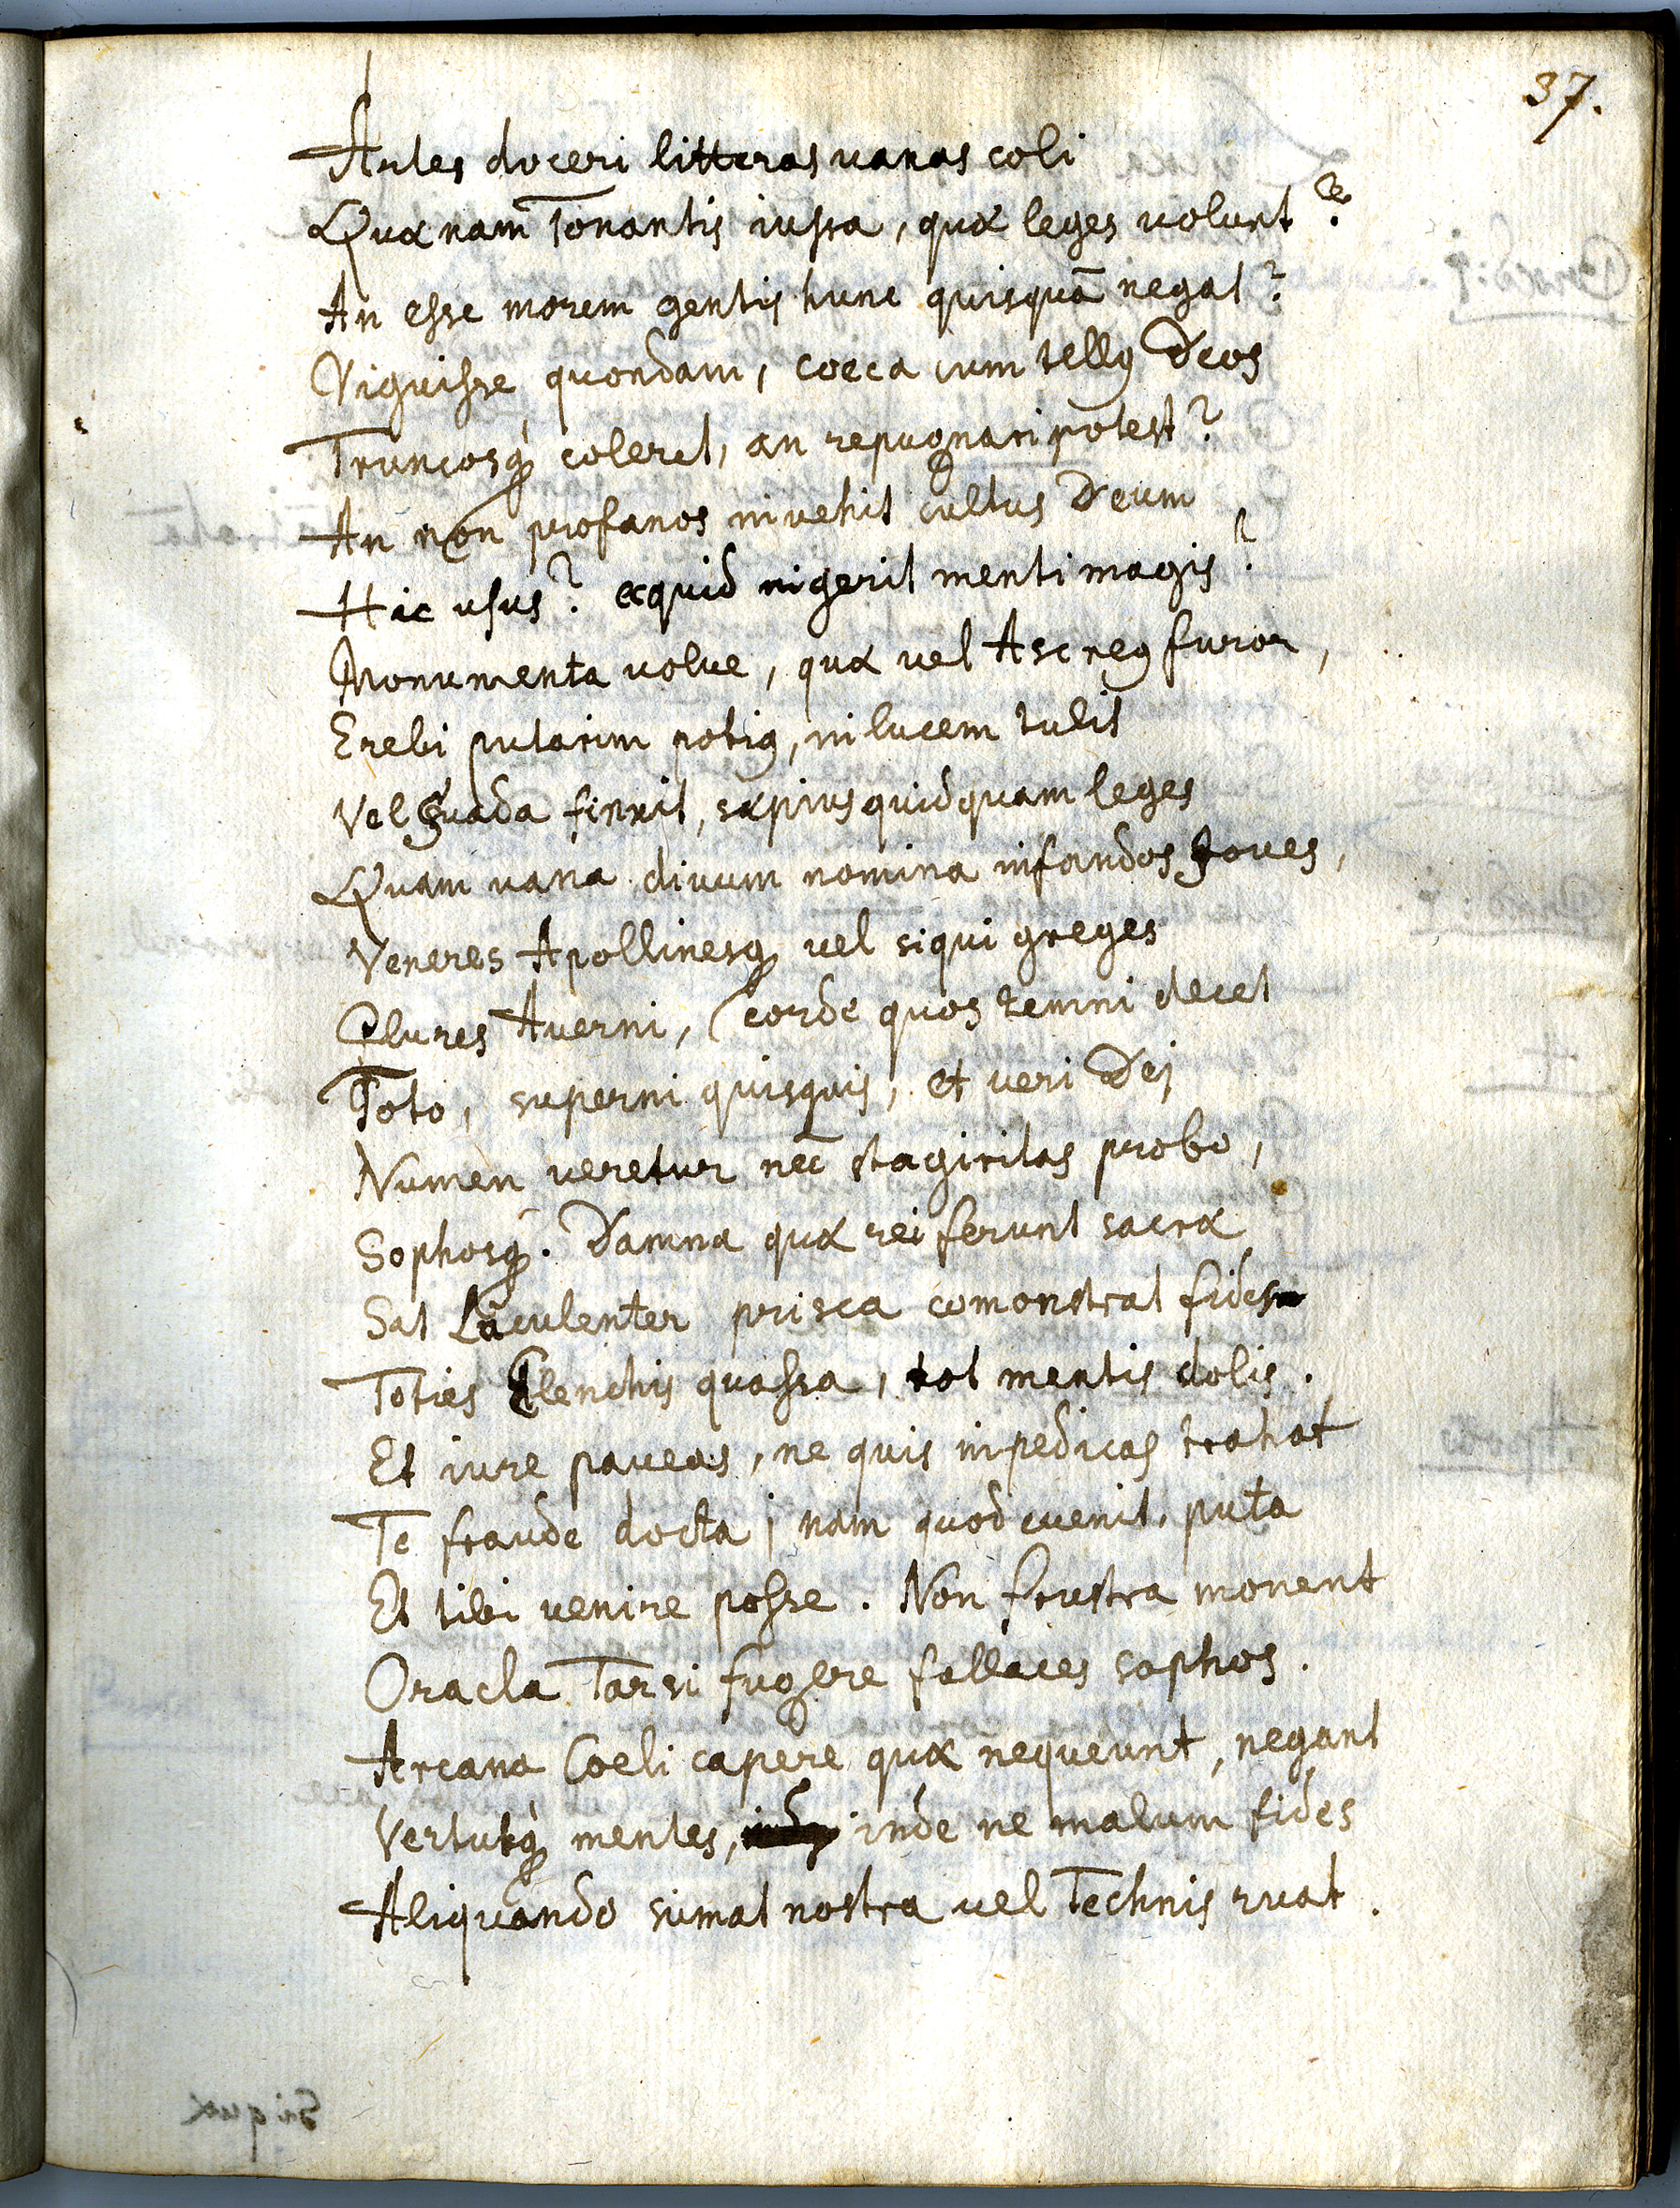 37.
Artes doceri litteras vanas coli
Quæ nam Tonantis iussa, quæ leges volunt?
An esse morem gentis hunc quisquā negat?
Viguisse quondam, coeca cum tellꝰ Deos
Truncosq́ꝫ coleret, an repugnari potest?
An non profanos invehit cultus Deum
Hic usus? ecquid ingerit menti magis?
Monumenta volve, quæ vel Ascreꝰ furor,
Erebi putarim potiꝰ, in lucem tulit
Vel Suada finxit, sæpius quidquam leges
Quam vana divum nomina infandos Joves,
Veneres Apollinesqꝫ vel siqui greges
Plures Averni, corde quos temni decet
Toto, superni quisquis, et veri Dei
Numen veretur nec stagiritas probo,
Sophosqꝫ. Damna quæ rei ferunt sacræ
Sat Luculenter prisca comonstrat fides
Toties Elenchis quassa, tot mentis dolis.
Et iure paveas, ne quis in pedicas trahat
Te fraude docta; nam quod evenit, puta
Et tibi venire posse. Non frustra monent
Oracla Tarsi fugere fallaces sophos.
Arcana Coeli capere quæ nequeunt, negant
Vertutq́ꝫ mentes, inde ne malum fides
Aliquando sumat nostra vel Technis ruat.